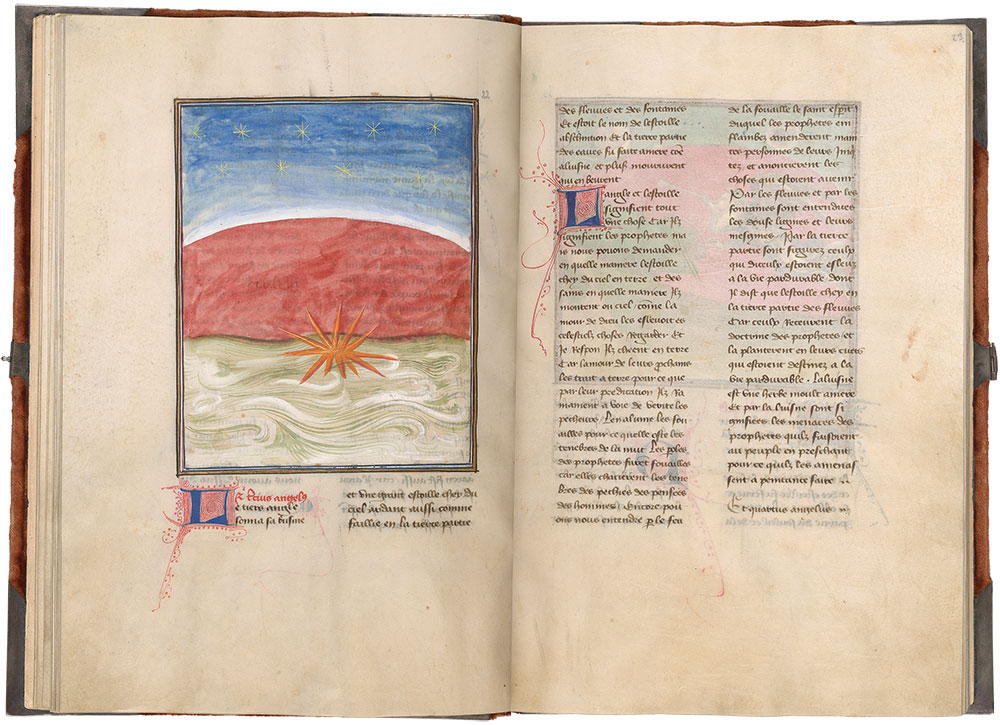 22
Et tercius angelus
Le tiers angle
sonna sa busine
et une grant estoille chey du
ciel ardant aussi comme
faille en la tierce partie
23
des fleuves et des fontaines
Et estoit le nom de lestoille
absinction et la tierce partie
des eaues fu faite amere com
aluisne et plus mouvrent
qui en beurent
Langle et lestoille
signifient tout
une chose Car Ilz
signifient les prophetes ma
is nous pouons demander
en quelle maniere lestoille
chey du ciel en terre et des
sains en quelle maniere Ilz
montent ou ciel Come la
mour de dieu les eslevoit es
celestielx choses Regarder Et
Je Respon Ilz cheent en terre
Car lamour de leurs prochains
les trait a terre pour ce que
par leur predication Ilz Ra
mainent a voie de verite les
pecheurs Len alume les fou
ailles pour ce quelle este les
tenebres de la nuit Les poles
des prophetes furet fouailles
car elles chacierent les tene
bres des pechies des pensees
des hommes Encore pou
ons nous entendre p le feu
de la fouaille le saint esprit
duquel les prophetes em
flambez amenderent main
tes personnes de leurs Iniq
tez et anoncierent les
choses qui estoient avenir
Par les fleuves et par les
fontaines sont entendues
les douse lignies et leurs
mesgnies Par la tierce
partie sont figurez ceulx
qui diceulx estoient esleuz
a la vie pardurable dont
Il dist que lestoille chey en
la tierce partie des fleuves
Car ceulx Receurent la
doctrine des prophetes et
la planterent en leurs cuers
qui estoient destinez a la
vie pardurable Laluisne
est une herbe moult amere
Et par laluisne sont si
gnifiees les menaces des
prophetes quilz faisoient
au peuple en preschant
pour ce quilz les amenas
sent a penitance faire
Et quartus angelus